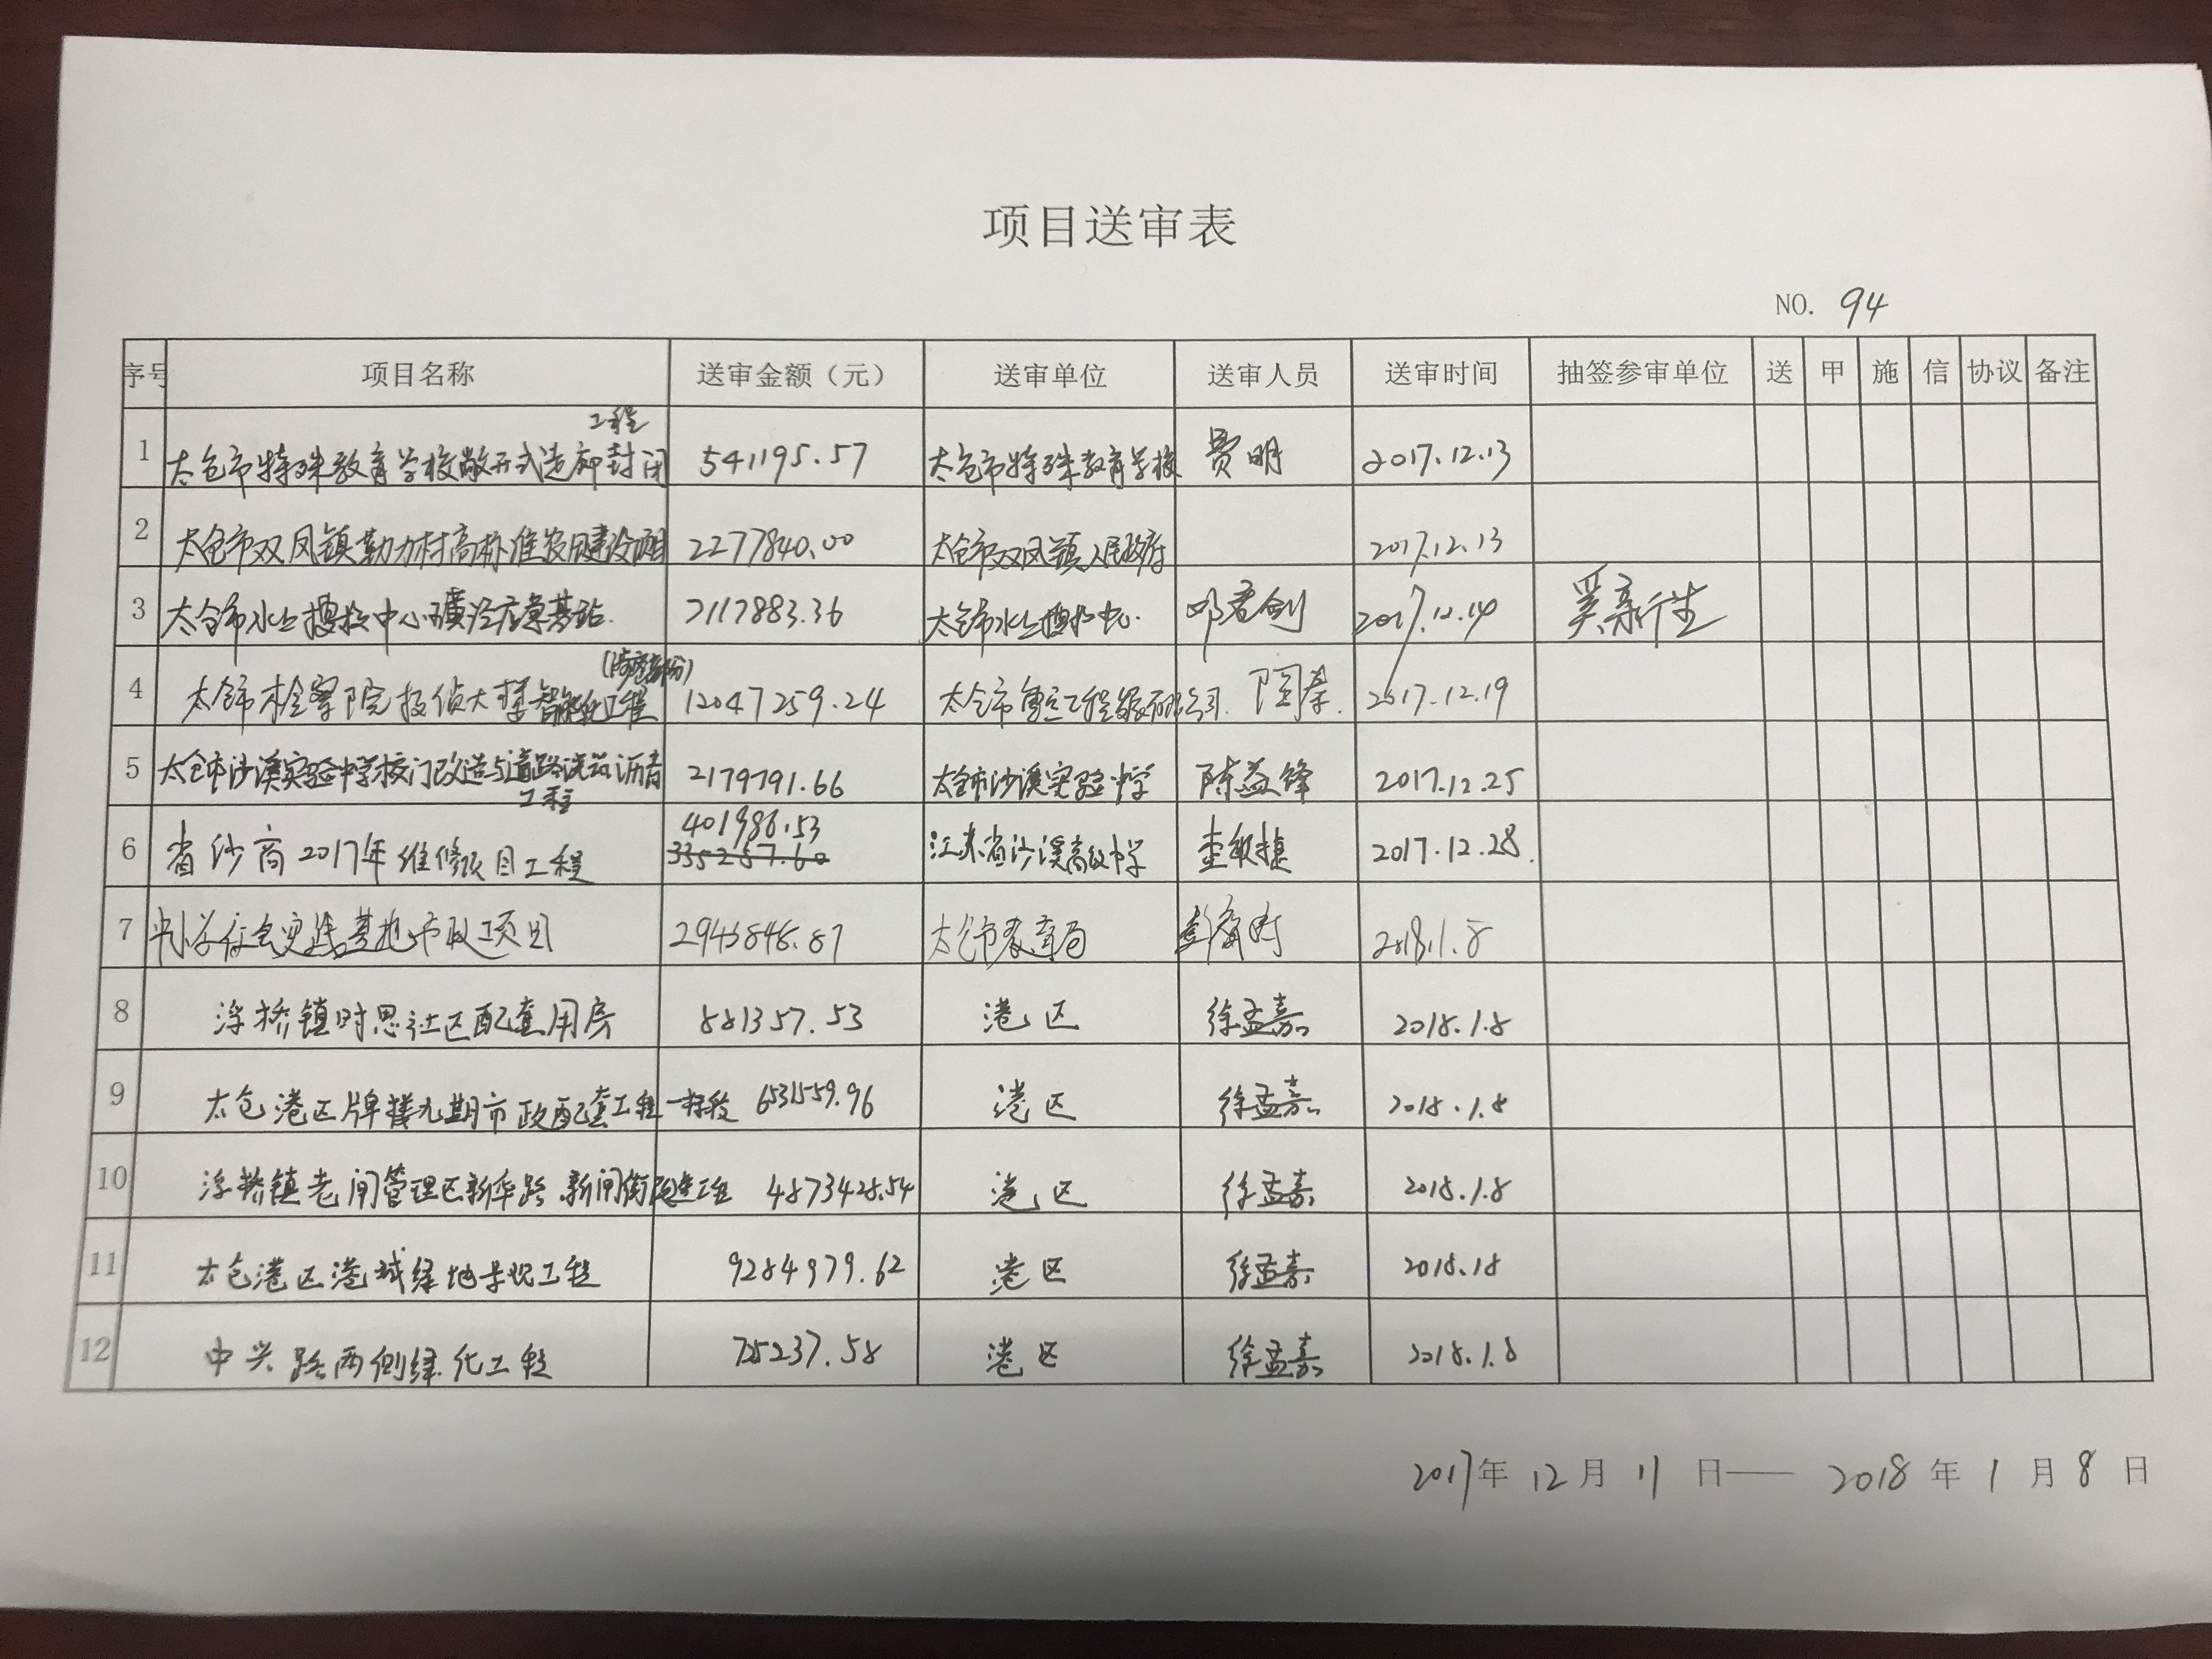 项目送审表
NO. 94
序号 项目名称 送审金额（元） 送审单位 送审人员 送审时间 抽签参审单位 送 甲 施 信 协议 备注
工程
1 太仓市特殊教育学校敞开式连廊封闭 541195.57 太仓市特殊教育学校 费明 2017.12.13
2 太仓市双凤镇勤力村高标准农田建设项目 2277840.00 太仓市双凤镇人民政府 2017.12.13
3 太仓市水上搜救中心璜泾应急基站 2117883.36 太仓市水上搜救中心 邓君剑 2017.12.14 奚新生
4 太仓市检察院技侦大楼智能化工程 12047259.24 太仓市重点工程 公司 2017.12.19
5 太仓市沙溪实验中学校门改造与道路浇筑沥青 2179791.66 太仓市沙溪实验中学 陈益锋 2017.12.25
工程
401986.53
6 省沙高2017年维修项目工程 335257.60 江苏省沙溪高级中学 敏捷 2017.12.28.
7 中小学社会实践基地市政项目 2943848.87 太仓市教育局 2018.1.8
8 浮桥镇时思社区配套用房 881357.53 港区 徐孟嘉 2018.1.8
9 太仓港区牌楼九期市政配套工程一标段 6531559.96 港区 徐孟嘉 2018.1.8
10 浮桥镇老闸管理区新华路 新闸街改造工程 4873428.54 港区 徐孟嘉 2018.1.8
11 太仓港区港城绿地景观工程 9284979.62 港区 徐孟嘉 2018.18
12 中兴路两侧绿化工程 725237.58 港区 徐孟嘉 2018.1.8
2017年 12月 11 日—— 2018 年 1 月 8 日